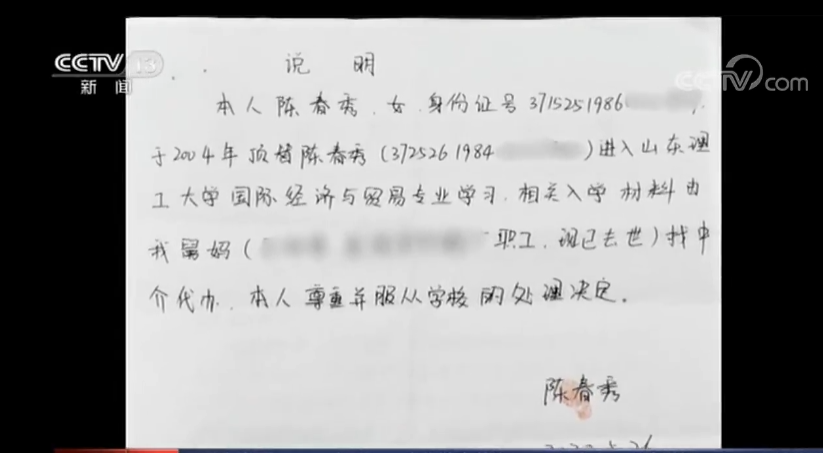 CCTV 13
新闻
CCTV.com
说 明
本人陈春秀,女,身份证号3715251986
于2004年顶替陈春秀(372526 1984 )进入山东理
工大学国际经济与贸易专业学习,相关入学材料由
我舅妈( 职工,现已去世)找中
介代办,本人尊重并服从学校的处理决定。
陈春秀